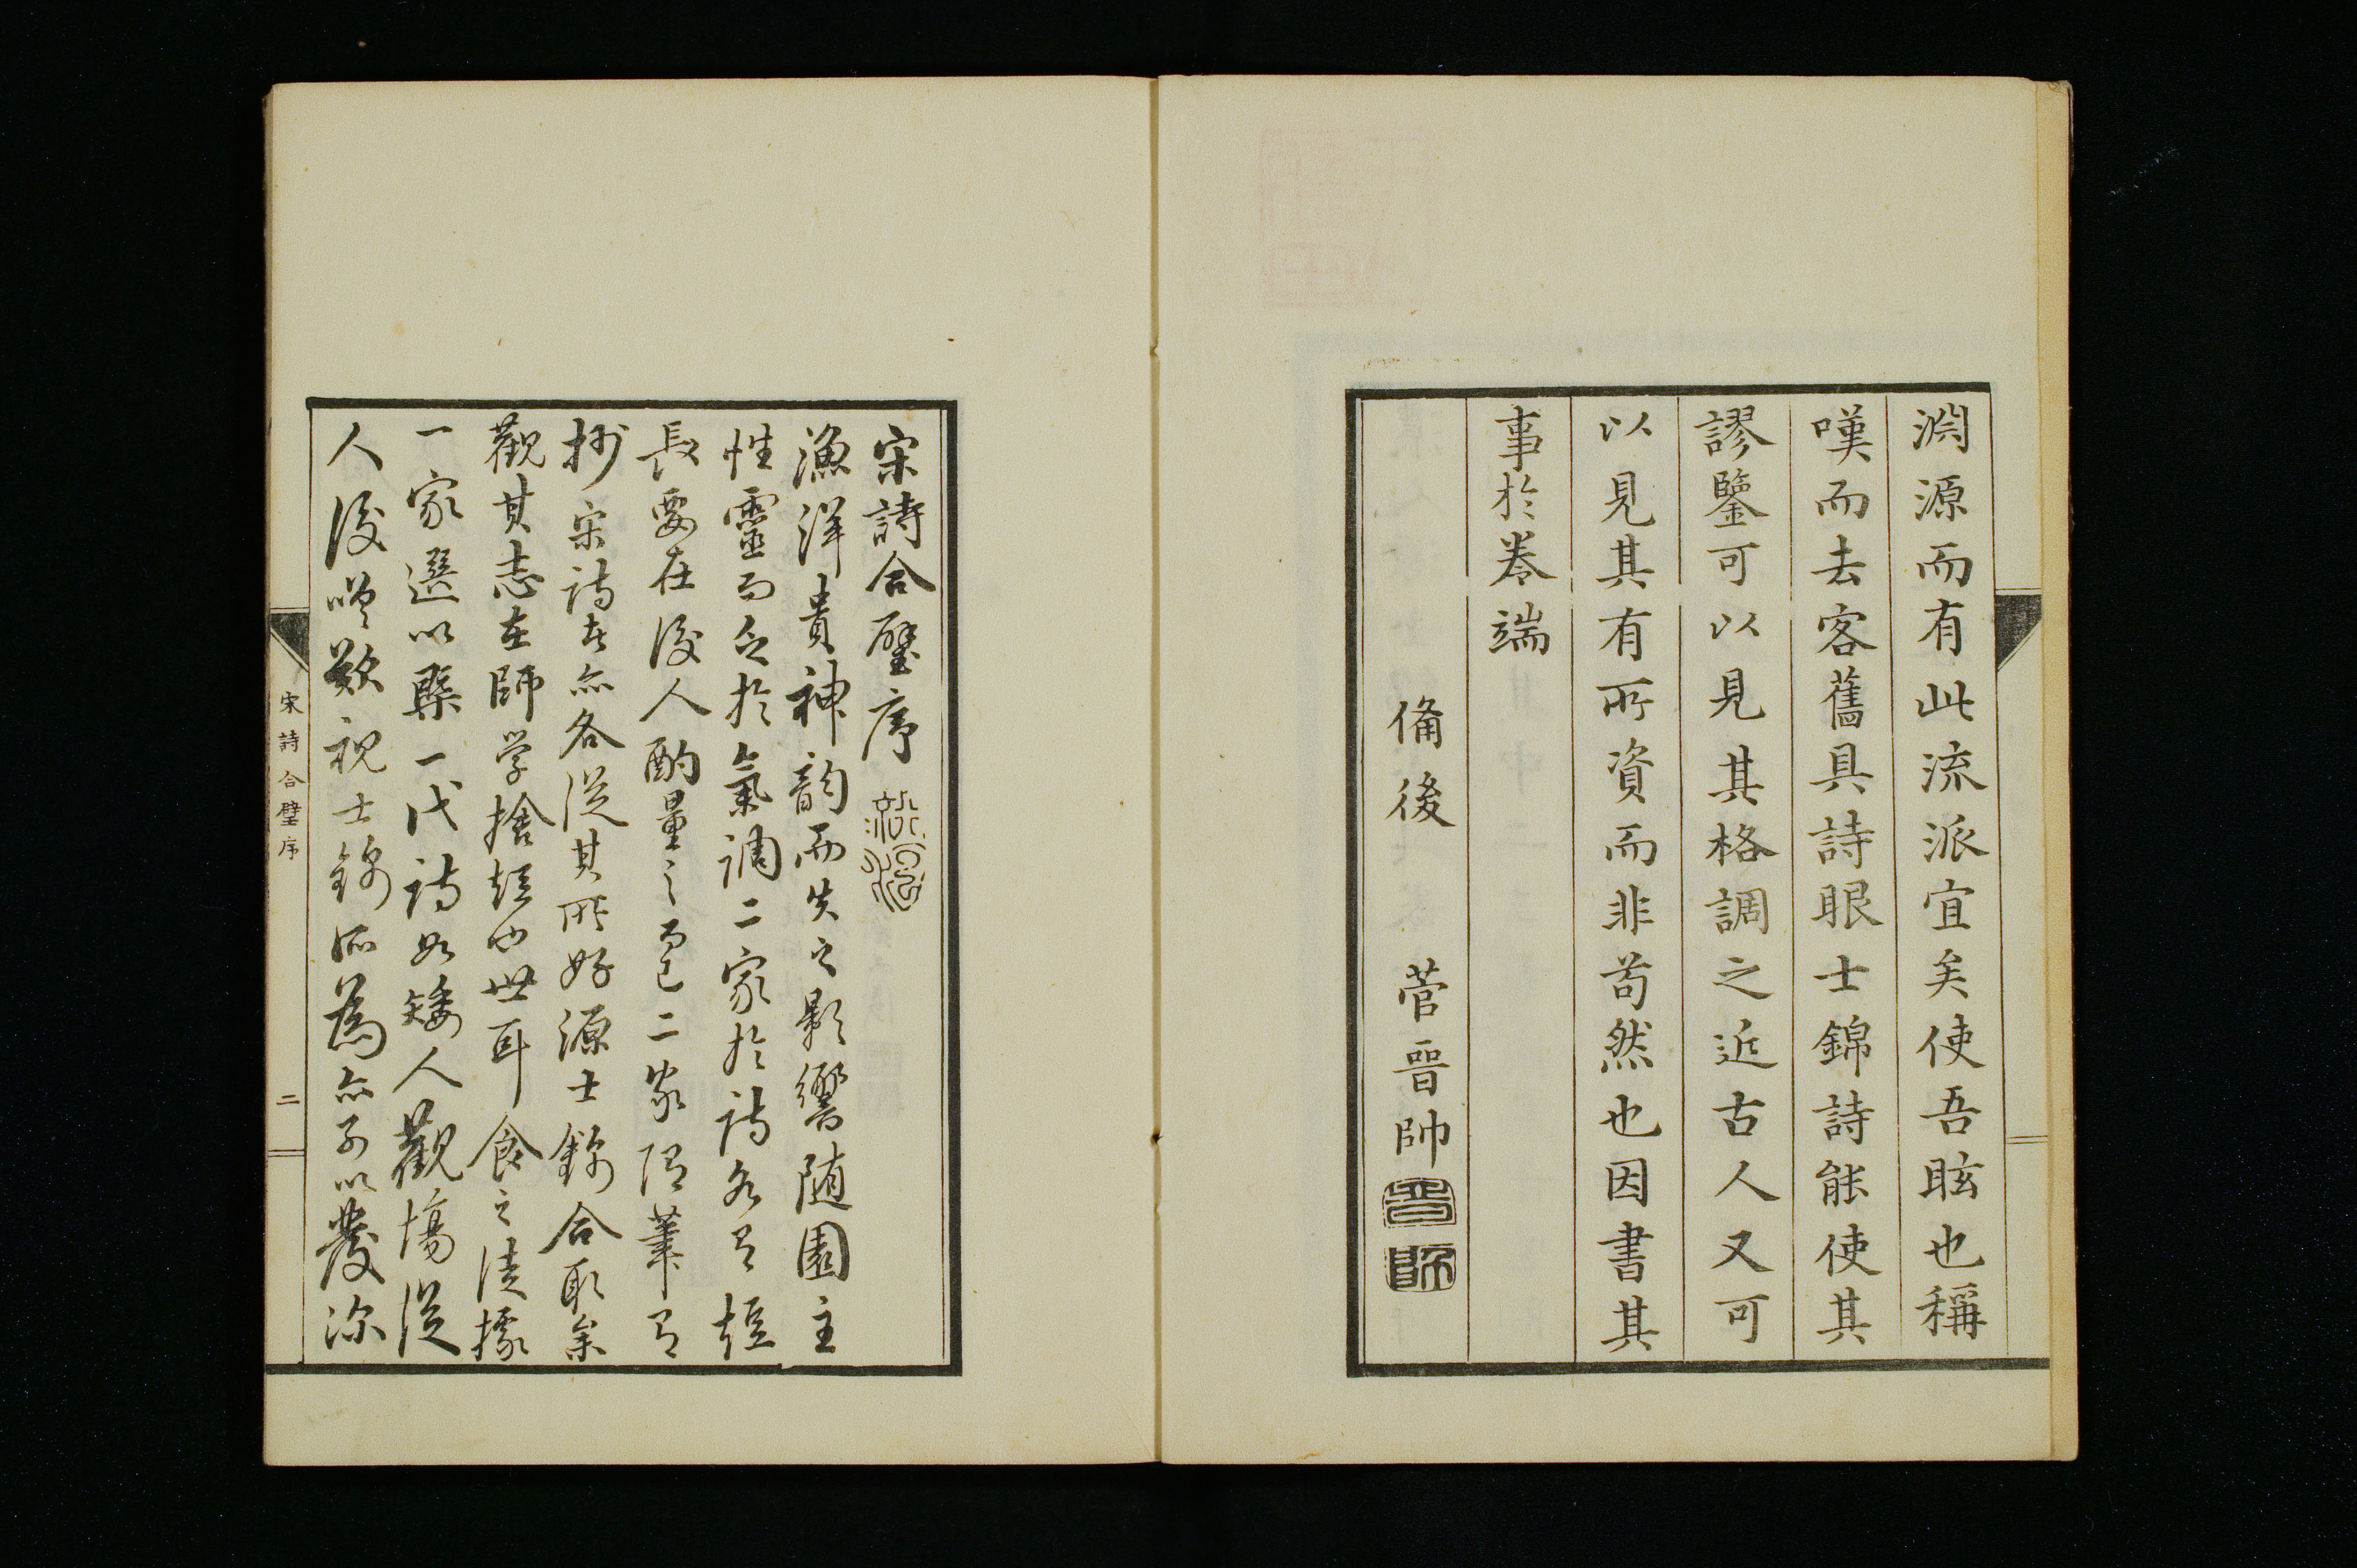 淵源而有此流派宜矣使吾眩也稱
嘆而去客舊具詩眼士錦詩能使其
謬鑒可以見其格調之近古人又可
以見其有所資而非苟然也因書其
事於卷端
備後 菅晉帥
晉
帥
宋詩合璧序
漁洋貴神韵而失之影響随園主
性靈而乏於氣調二家於詩各有短
長要在後人酌量之而已二家隨筆有
抄宋詩者亦各從其所好源士錦合取余
觀其志在師学捨短也世耳食之徒據
一家選以槩一代詩如矮人觀場從
人後嗟歎視士錦所為亦可以發深
宋詩合璧序 二